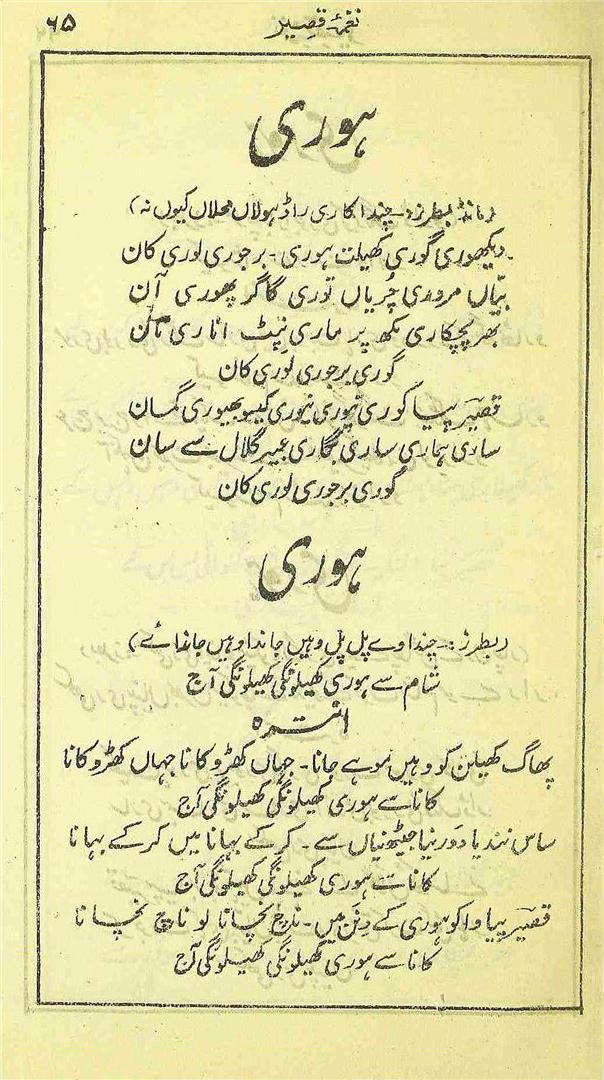 نغمۂ قصیر ۶۵
ہوری
(مانڈ بطرز:۔ چندا کاری راڈ ہولاں محلاں کیوں نہ)
دیکھوری گوری کھیلت ہوری۔ برجوری لوری کان
بیّاں مروری چُریاں توری گاگر پھوری آن
بھر پچکاری مکھ پر ماری نپٹ اناری تان
گوری برجوری لوری کان
قصیرؔ پیا کوری نیوری نیوری کیسو بھیوری گمان
سادی ہماری ساری بگاری عبیر گلال سے سان
گوری برجوری لوری کان
ہوری
(بطرز:۔ چندا وے پل پل وہیں جاندا وہیں جاندائے)
شام سے ہوری کھیلونگی کھیلونگی آج
انترہ
پھاگ کھیلن کو وہیں موہے جانا۔ جہاں کھڑو کانا جہاں کھڑو کانا
کانا سے ہوری کھیلونگی کھیلونگی آج
ساس نندیا دَورنیا جیٹھنیاں سے۔ کرکے بہانا میں کرکے بہانا
کانات ہوری کھیلونگی کھیلونگی آج
قصیرؔ پیا وا کو ہوری کے دِنَن میں۔ ناچ نچانا لو ناچ نچانا
کانا سے ہوری کھیلونگی کھیلونگی آج